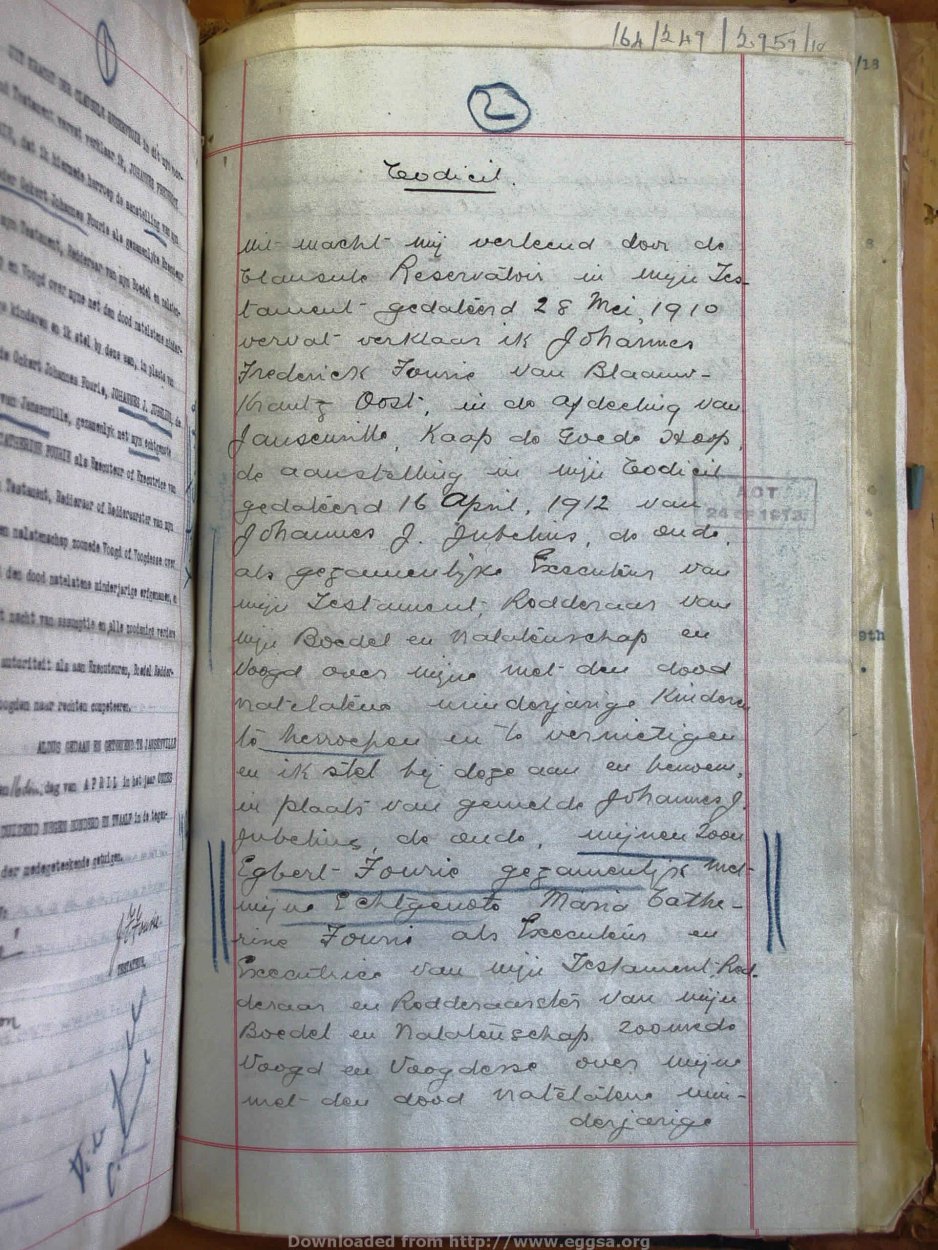 1
UIT KRACHT DER CLAUSULE RESERVATOIR in dit myn
Testament vervat verklaar ik, JOHANNES FREDERICK
dat ik hiermede herroep de aanstelling van myn
Gekert Johannes Fourie als gezamenlyke Executeur
myn Testament, Redderaar van myn Boedel en nalaten-
en Voogd over myne met den dood natelatene minder-
kinderen en ik stel by deze aan, in plaats van
Gekert Johannes Fourie, JOHANNES J. JUBELIUS, de
van Jansenville, gezamenlyk met myn echtgenoote
CATHERINE FOURIE als Executeur of Executrice van
Testament, Redderaar of Redderaarster van myn
en nalatenschap zoomede Voogd of Voogdesse over
den dood natelatene minderjarige erfgenamen, en
macht van assumptie en alle zoodanige verdere
autoriteit als aan Executeuren, Boedel Redder-
Voogden naar rechten competeeren.
ALDUS GEDAAN EN GETEEKEND TE JANSENVILLE
16den dag van APRIL in het jaar
DUIZEND NEGEN HONDERD EN TWAALF in de tegen-
der medegeteekende getuigen.
TESTATEUR.
164/249/2959/10
/18
2
Codicil.
Uit macht mij verleend door de
Clausule Reservatoir in mijn Tes-
tament gedateerd 28 Mei, 1910
vervat verklaar ik Johannes
Frederick Fourie van Blaauw-
Krantz Oost, in de afdeeling van
Jansenville, Kaap de Goede Hoop,
de aanstelling in mijn Codicil
gedateerd 16 April, 1912 van
Johannes J. Jubelius, de oude,
als gezamenlijke Executeur van
mijn Testament, Redderaar van
mijn Boedel en Nalatenschap en
Voogd over mijne met den dood
natelatene minderjarige Kinderen
te herroepen en te vernietigen
en ik stel bij deze aan en benoem,
in plaats van gemelde Johannes J.
Jubelius, de oude, mijnen Zoon
Egbert Fourie gezamenlijk met
mijne Echtgenote Maria Cathe-
rine Fourie als Executeur en
Executrice van mijn Testament, Red-
deraar en Redderaarster van mijn
Boedel en Nalatenschap zoomede
Voogd en Voogdesse over mijne
met den dood natelatene min-
derjarige
ACT
24 SEP 1913
9th
Downloaded from http://www.eggsa.org